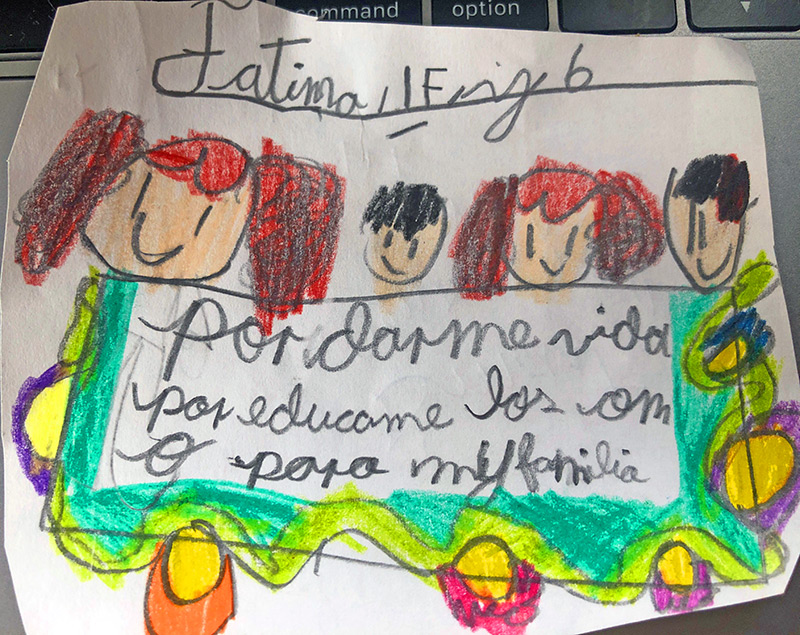 command option
Fatima, 1F
Por darme vida
por educame los om
O para my familia